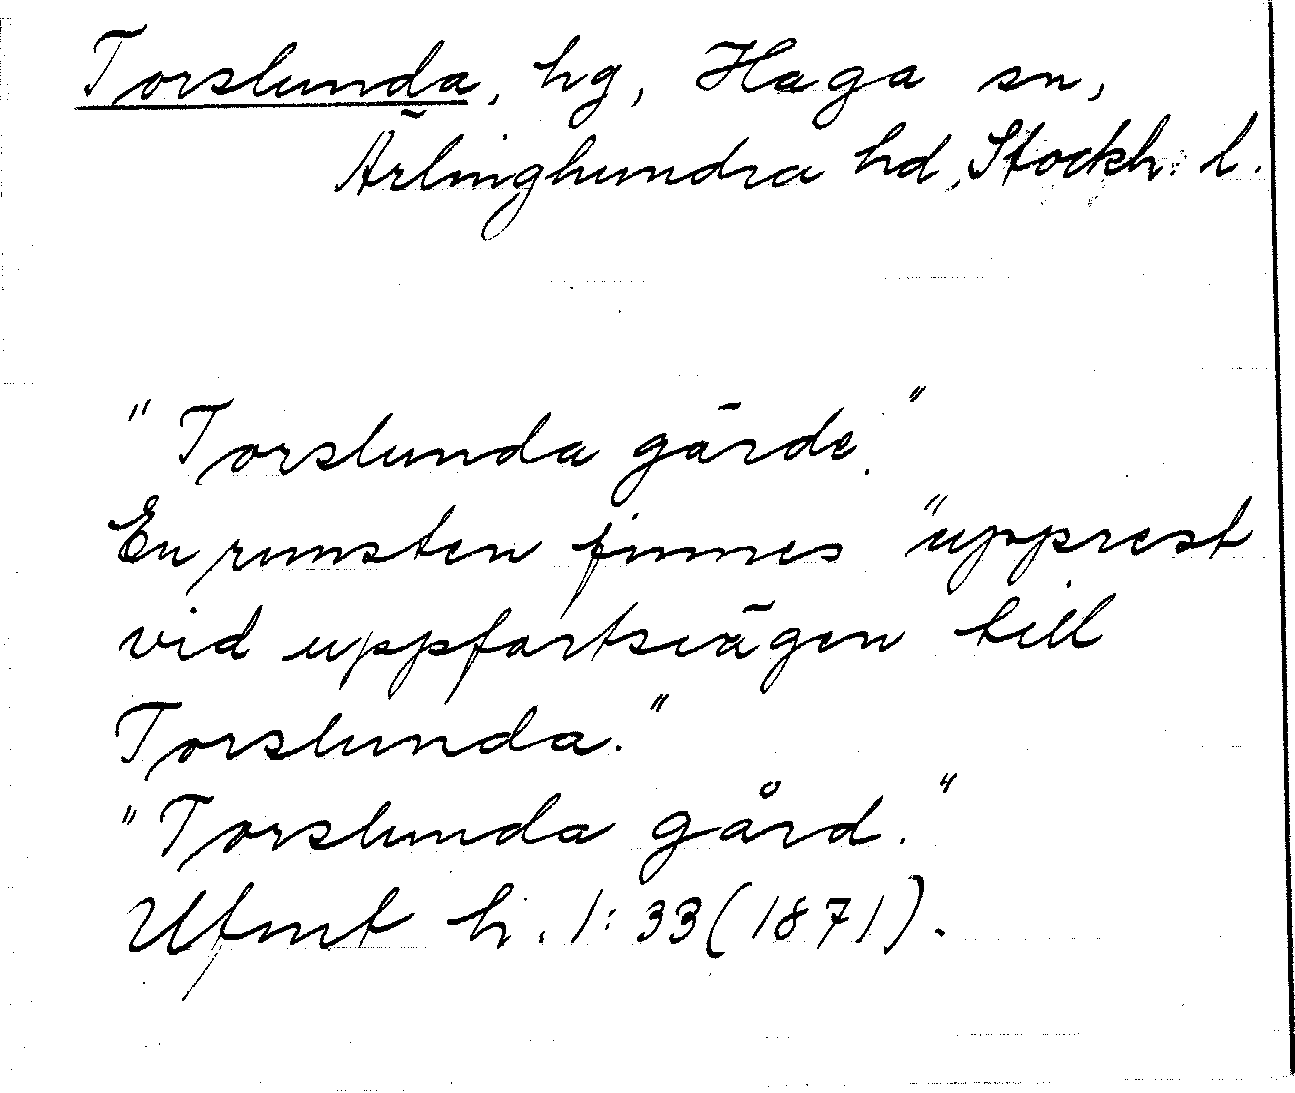 Torslunda, hg, Haga sn,
Ärlinghundra hd, Stockh. l.
"Torslunda gärde."
En runsten finnes "upprest
vid uppfartsvägen till
Torslunda."
"Torslunda gård."
Ufmt h. 1:33 (1871).